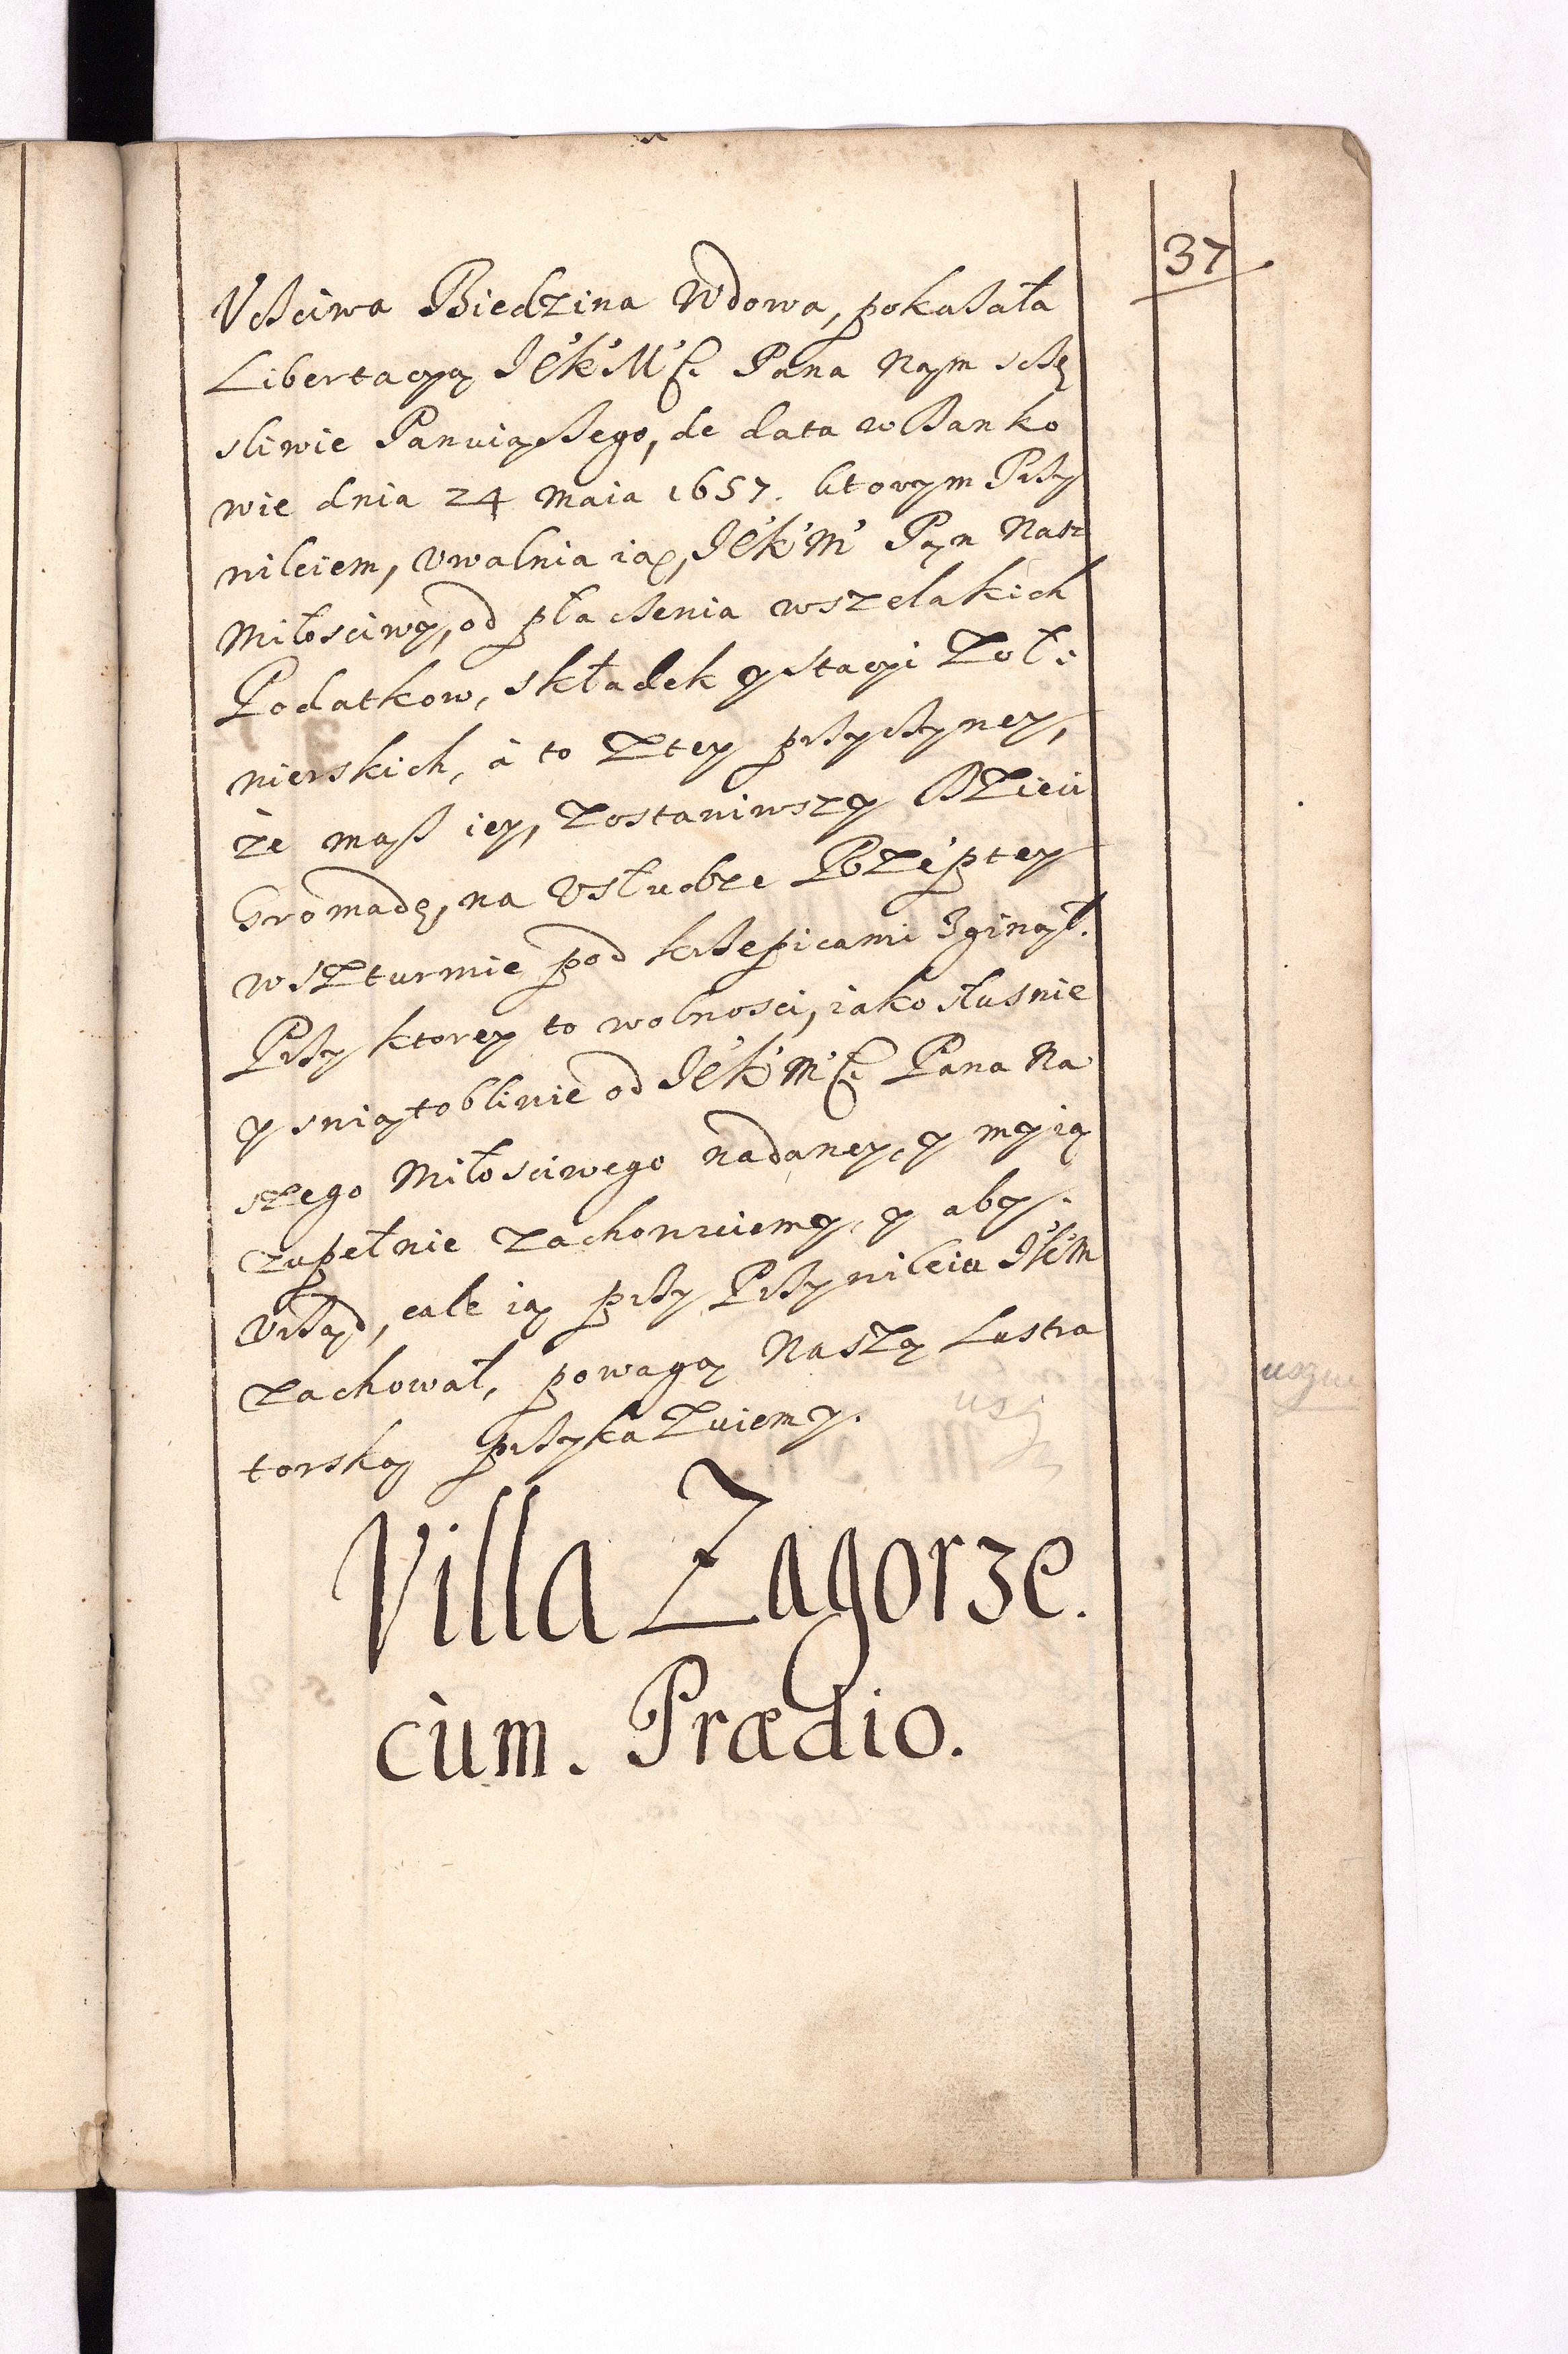 37
Vcżciwa Biedzina Wdowa, pokazała
Libertacyą JE°K°M°C. Pana Nam scżę
sliwie Panuiącżego, de data w Danko
wie dnia 24 Maia 1657. ktorym Przy
wileiem, vwalnia ią, JE°K°M° Pan Nasz
Miłosciwy, od płacżenia wszelakich
Podatkow, składek y stacyi Zoł:
nierskich, à to z tey przycżyney,
że mąż iey, zostawiwszy dzieci
Gromadę, na vsłudze Rzeptey
w szturmie pod krzepicami zginął.
Przy ktorey to wolnosci, iako słusnie
y swiątobliwie od JE°K°M°C. Pana Na
szego Miłosciwego nadaney, y my ią
zupełnie zachowuiemy, y aby
vrząd, cale ią przy Przywileiu JKM
zachował, powagą Naszą Lustra
torską przykazuiemy.
Villa Zagorze.
cùm. Prædio.